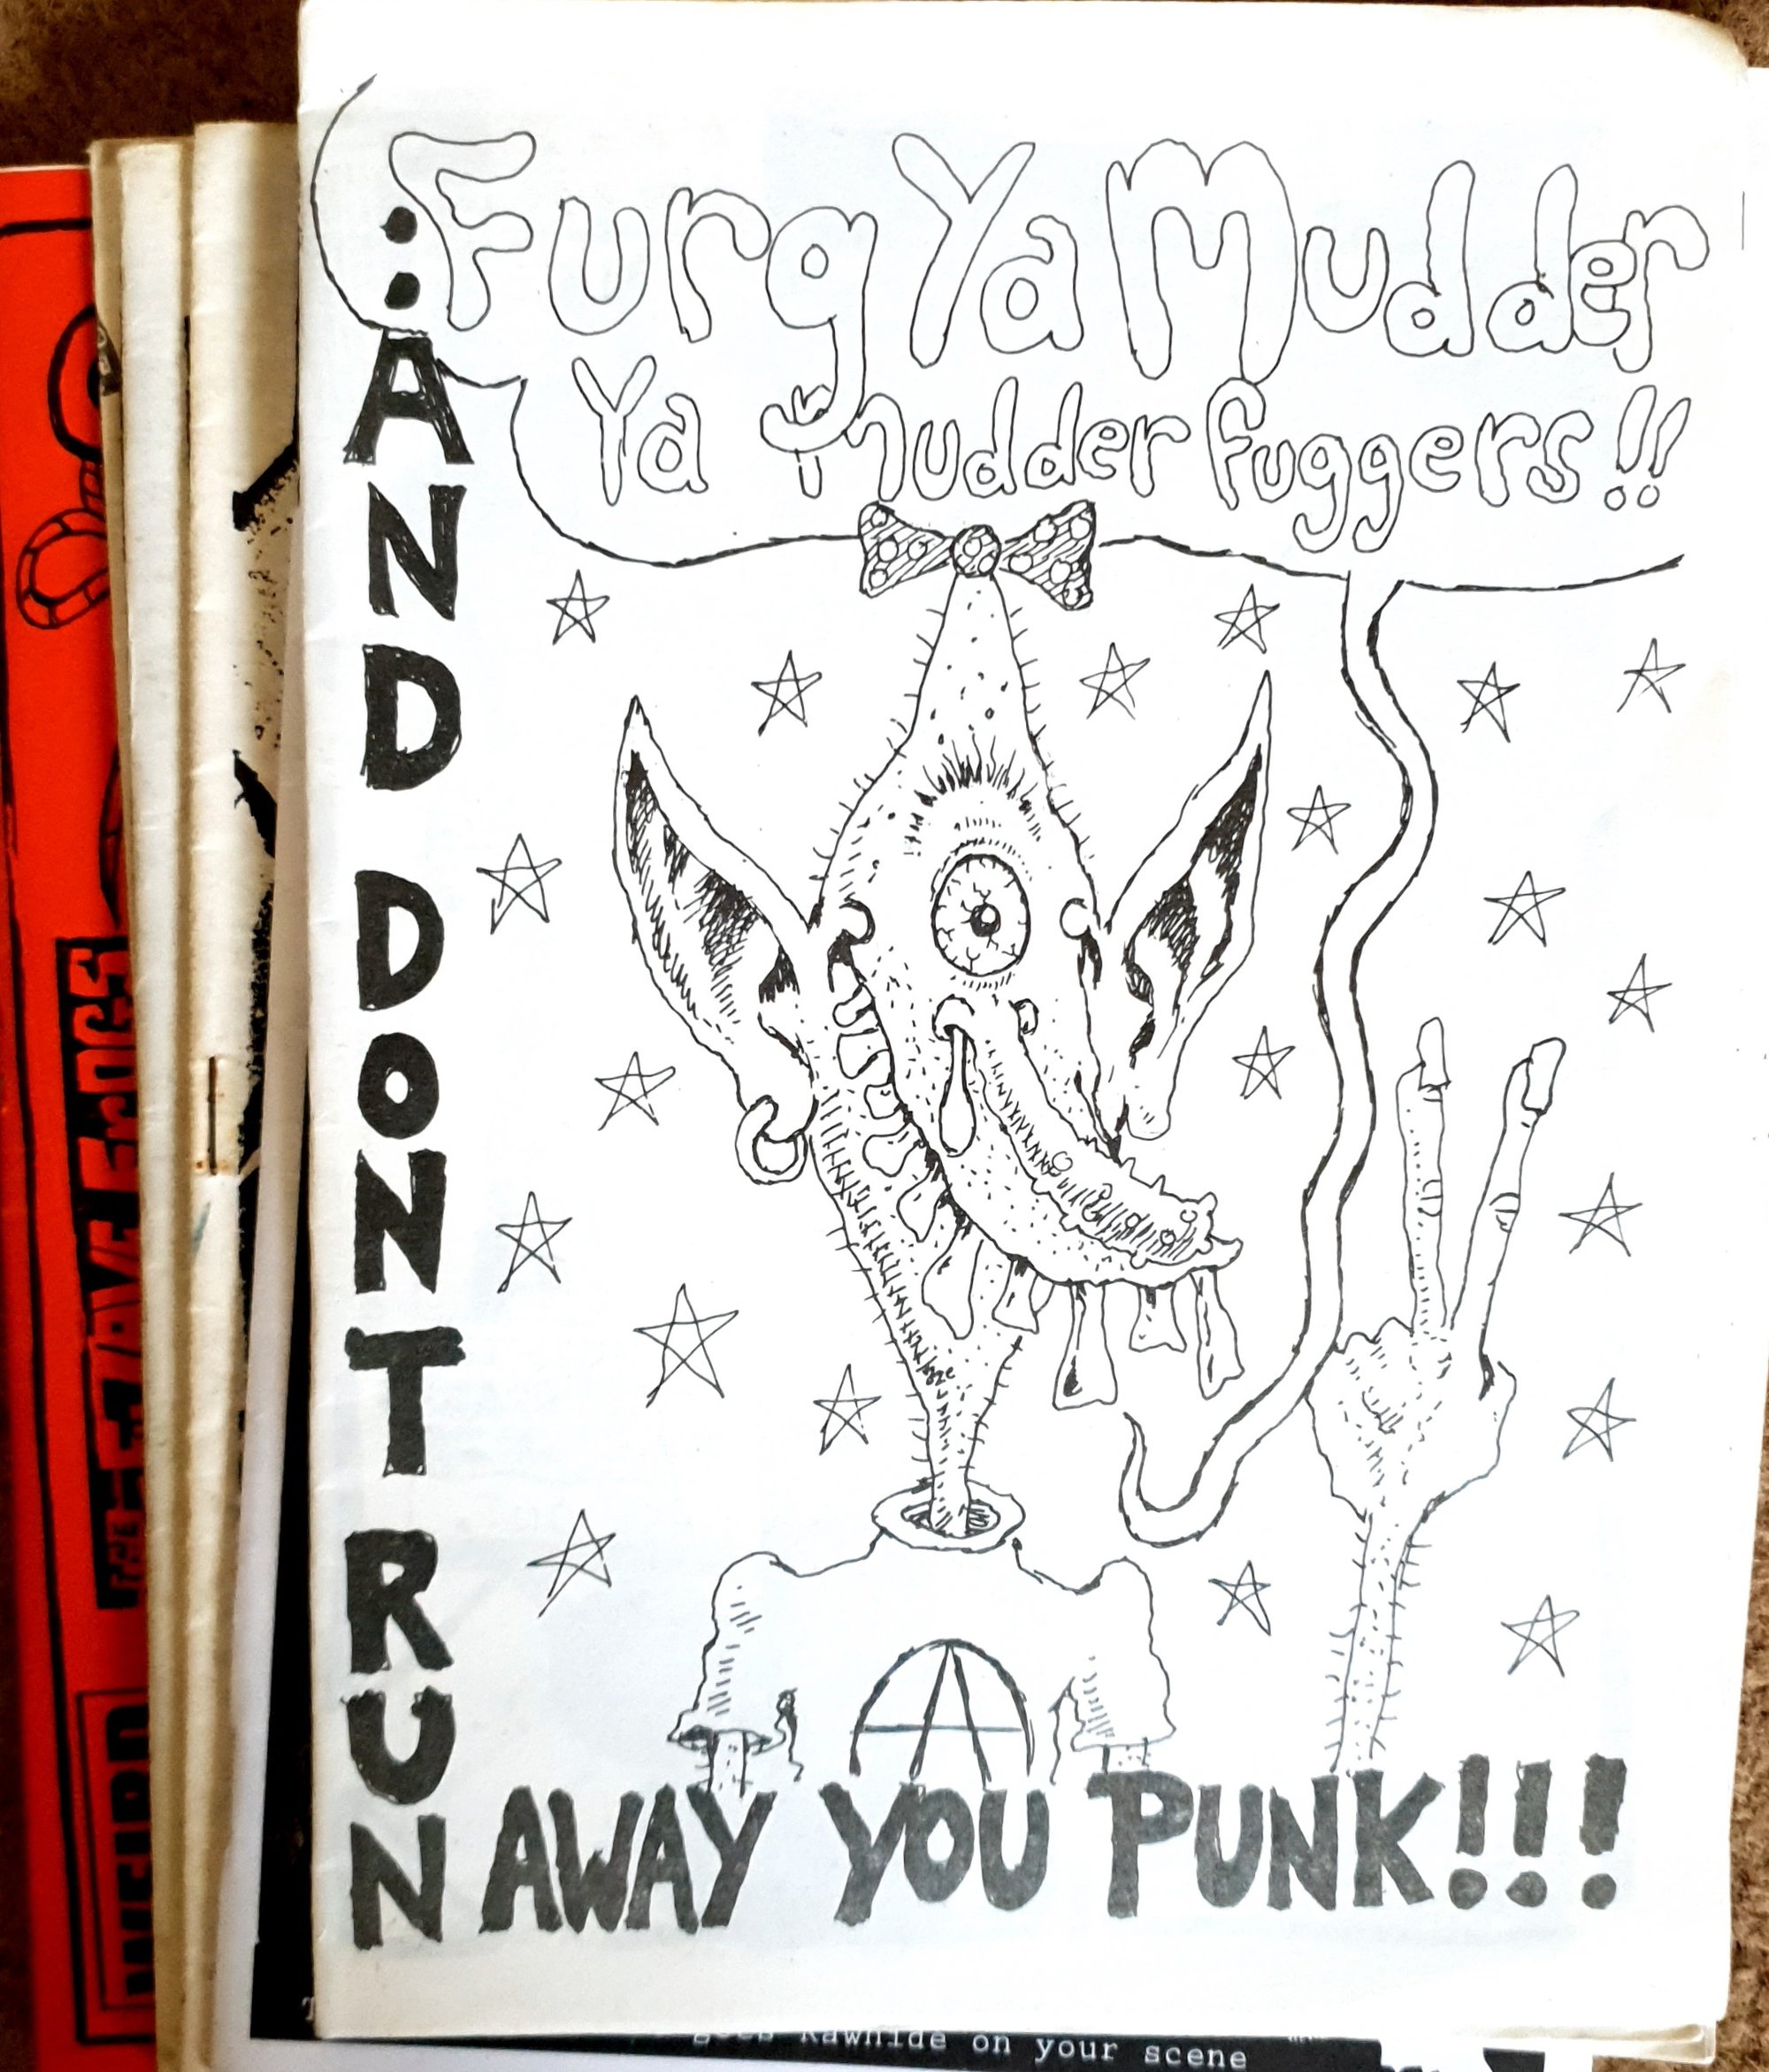 Furg Ya Mudder
Ya mudder fuggers!!
: AND DONT RUN
AWAY YOU PUNK!!!
goes Rawhide on your scene
WEIRD
THE